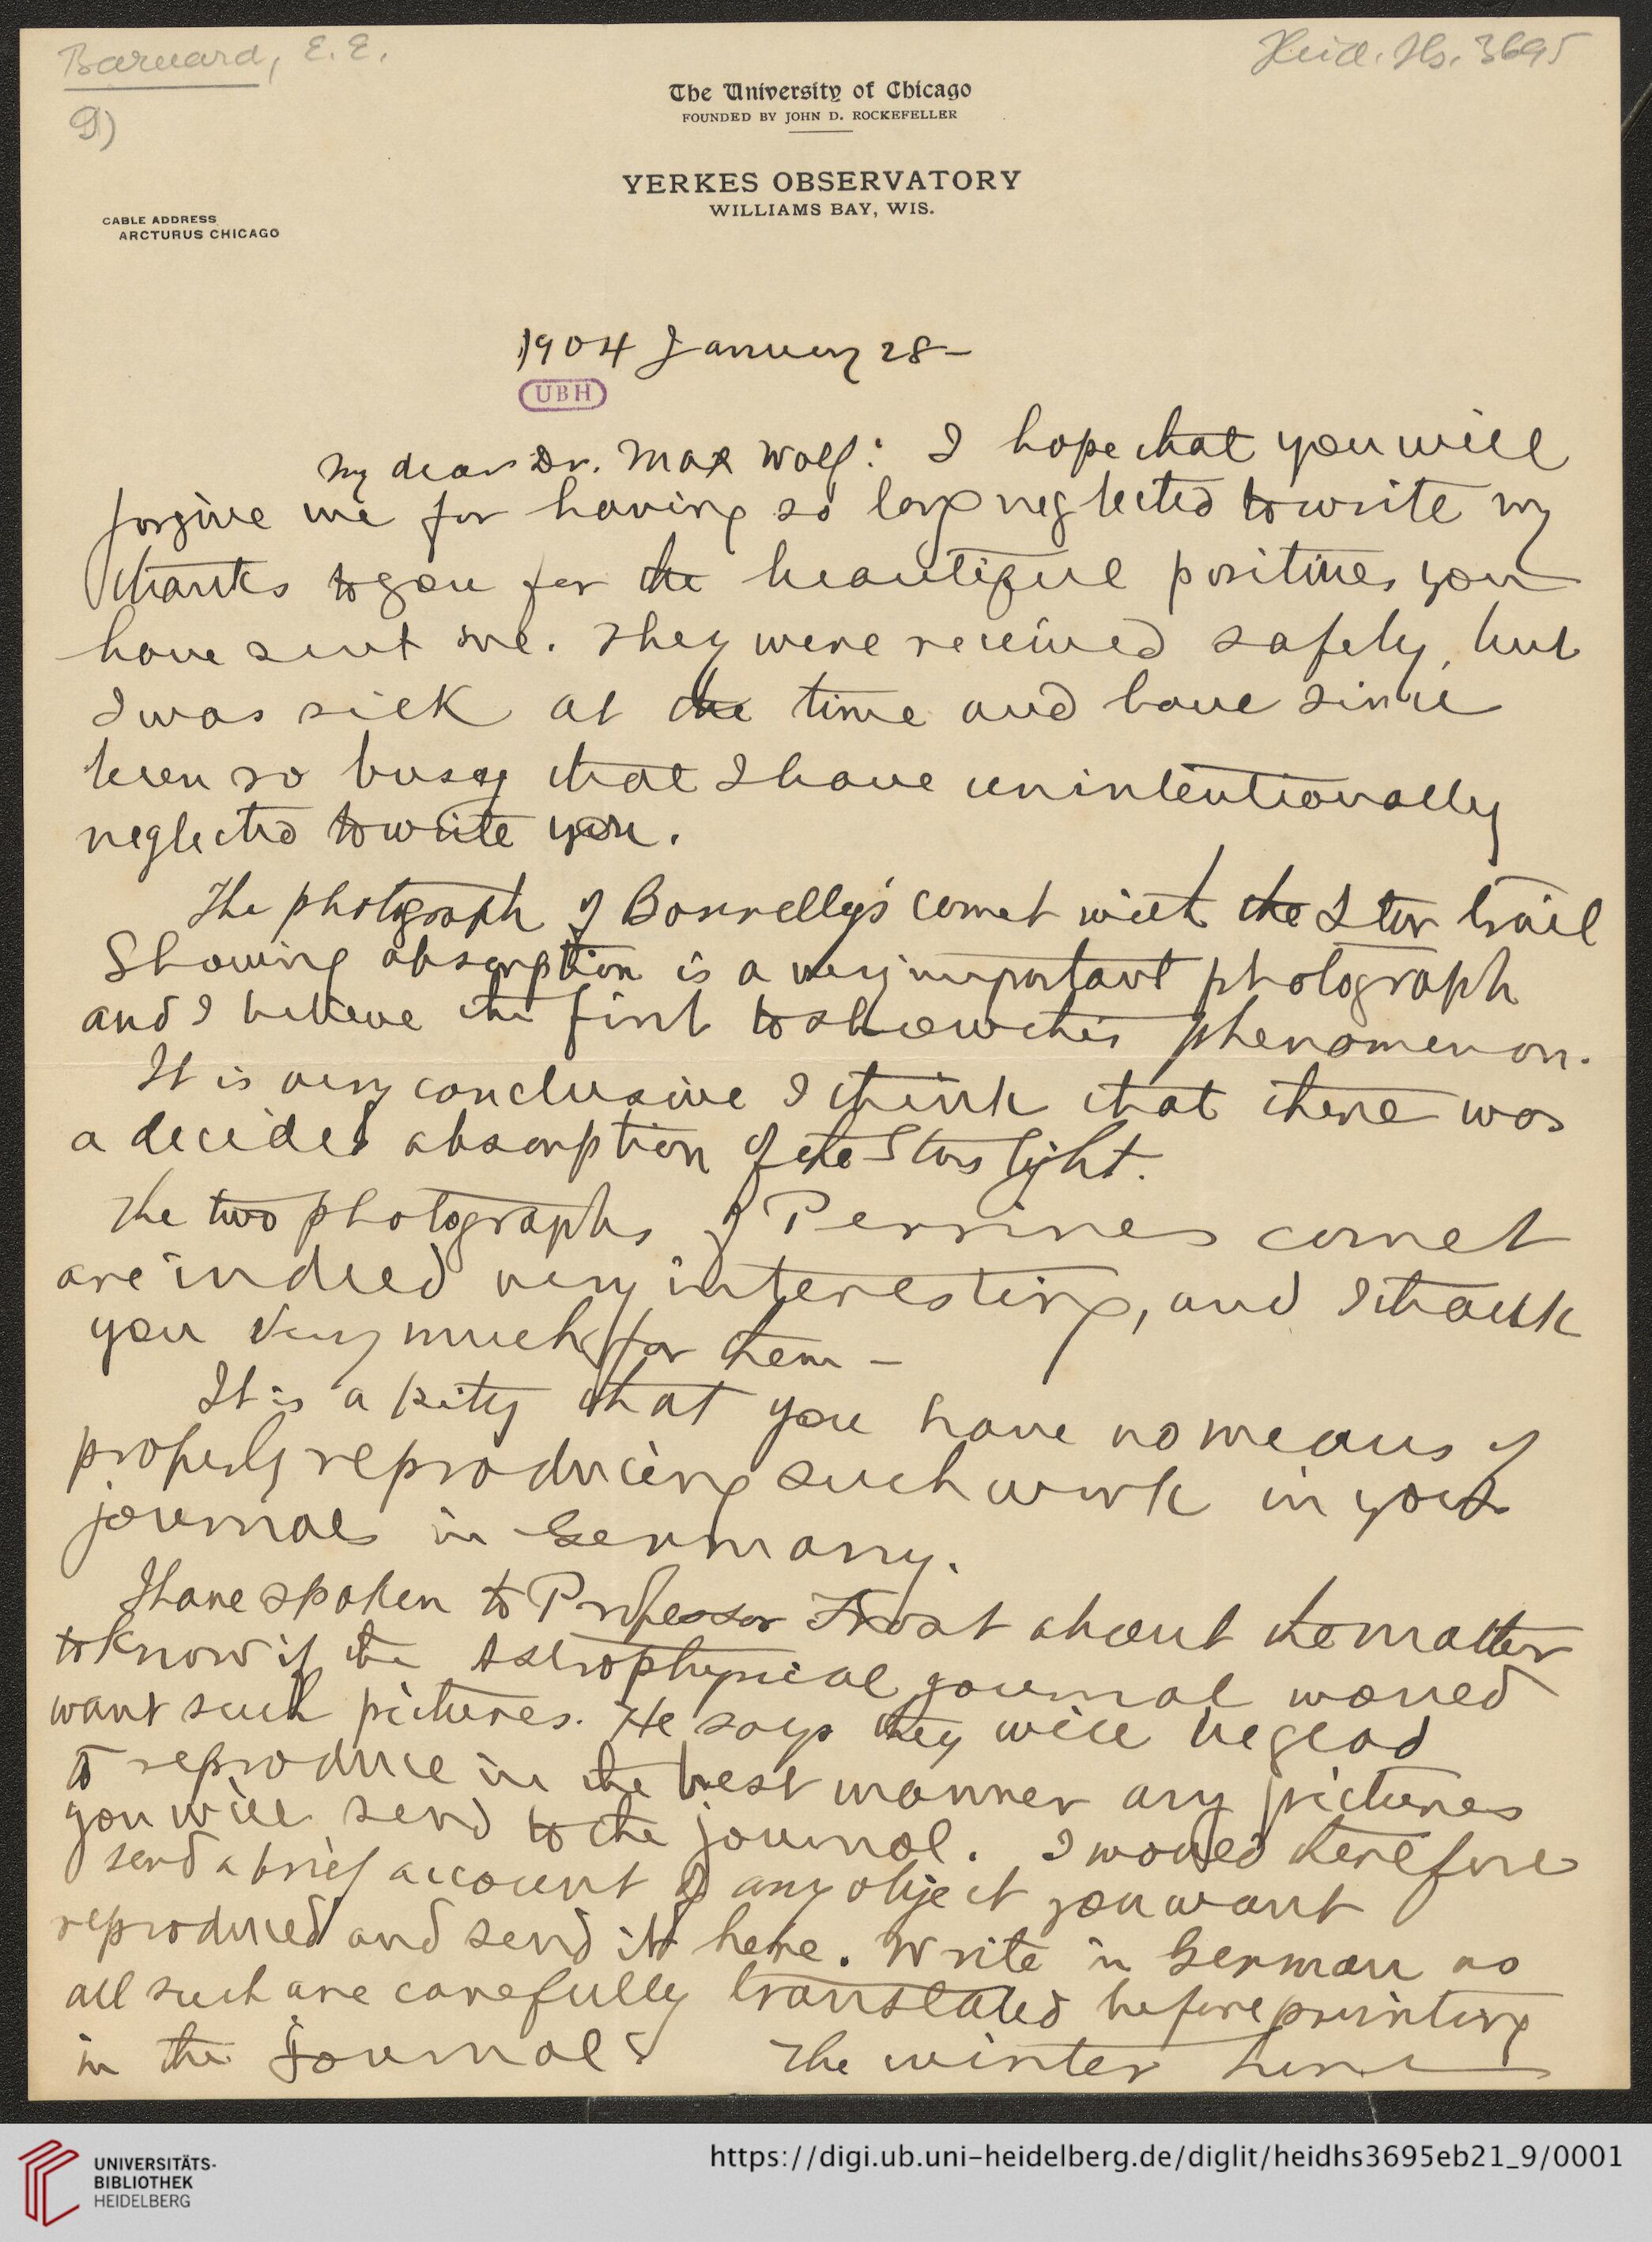 Barnard, E. E.
Heid. Hs. 3695
9)
The University of Chicago
FOUNDED BY JOHN D. ROCKEFELLER
YERKES OBSERVATORY
WILLIAMS BAY, WIS.
CABLE ADDRESS
ARCTURUS CHICAGO
1904 January 28-
UBH
My dear Dr. Max Wolf: I hope that you will
forgive me for having so long neglected to write my
thanks to you for the beautiful positives you
have sent me. They were received safely, but
I was sick at the time and have since
been so busy that I have unintentionally
neglected to write you.
The photograph of Borrelly's comet with the Star trail
Showing absorption is a very important photograph
and I believe the first to show this phenomenon.
It is very conclusive I think that there was
a decided absorption of the Stars light.
The two photographs of Perrines comet
are indeed very interesting, and I thank
you very much for them -
It is a pity that you have no means of
properly reproducing such work in your
journals in Germany.
I have spoken to Professor Frost about the matter
to know if the Astrophysical journal would
want such pictures. He says they will be glad
to reproduce in the best manner any pictures
you will send to the journal. I would therefore
send a brief account of any object you want
reproduced and send it here. Write in German as
all such are carefully translated before printing
in the journal. The winter here
UNIVERSITÄTS-
BIBLIOTHEK
HEIDELBERG
https://digi.ub.uni-heidelberg.de/diglit/heidhs3695eb21_9/0001